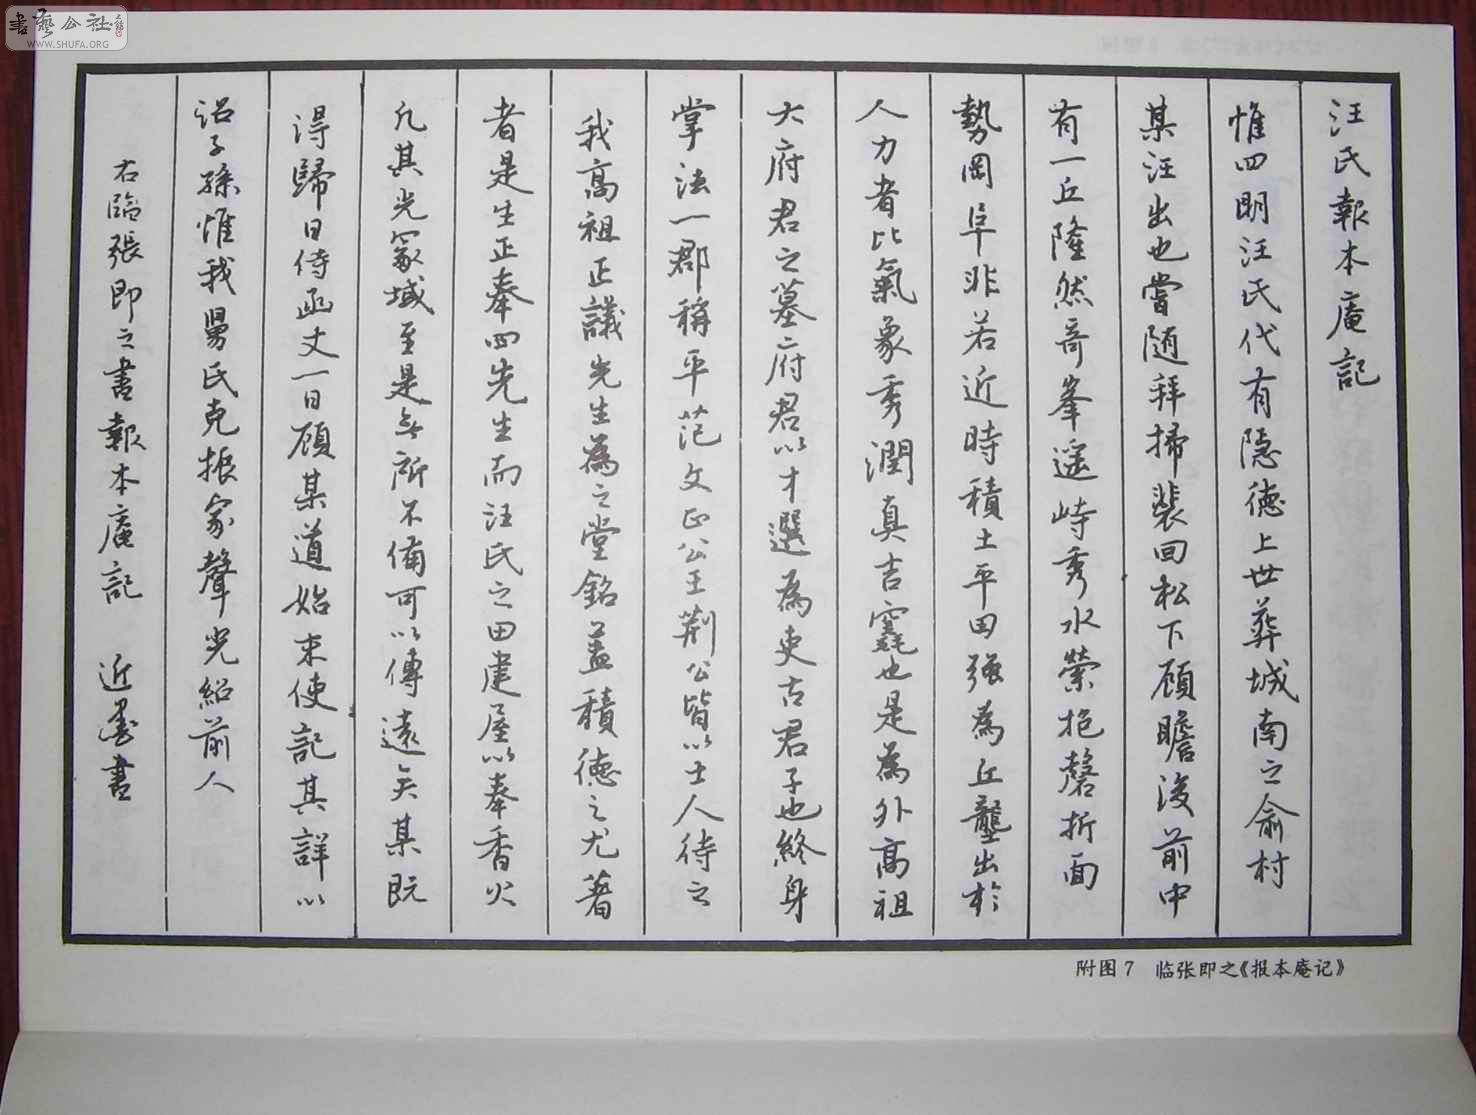 書藝公社
WWW.SHUFA.ORG
汪氏報本庵記
惟四明汪氏代有隠德上世葬城南之俞村
某汪出也嘗随拜掃裴回松下顧瞻後前中
有一丘隆然奇峯遥峙秀水縈抱磬折面
勢岡阜非若近時積土平田強為丘壟出於
人力者比氣象秀潤真吉竁也是為外高祖
大府君之墓府君以才選為吏古君子也終身
掌法一郡稱平范文正公王荆公皆以士人待之
我高祖正議先生為之堂銘葢積德之尤著
者是生正奉四先生而汪氏之田建屋以奉香火
凡其先冢域至是無所不備可以傳遠矣某既
得歸日侍函丈一日顧某道始末使記其詳以
詔子孫惟我舅氏克振家聲光紹前人
右臨張即之書報本庵記 近墨書
附图7 临张即之《报本庵记》